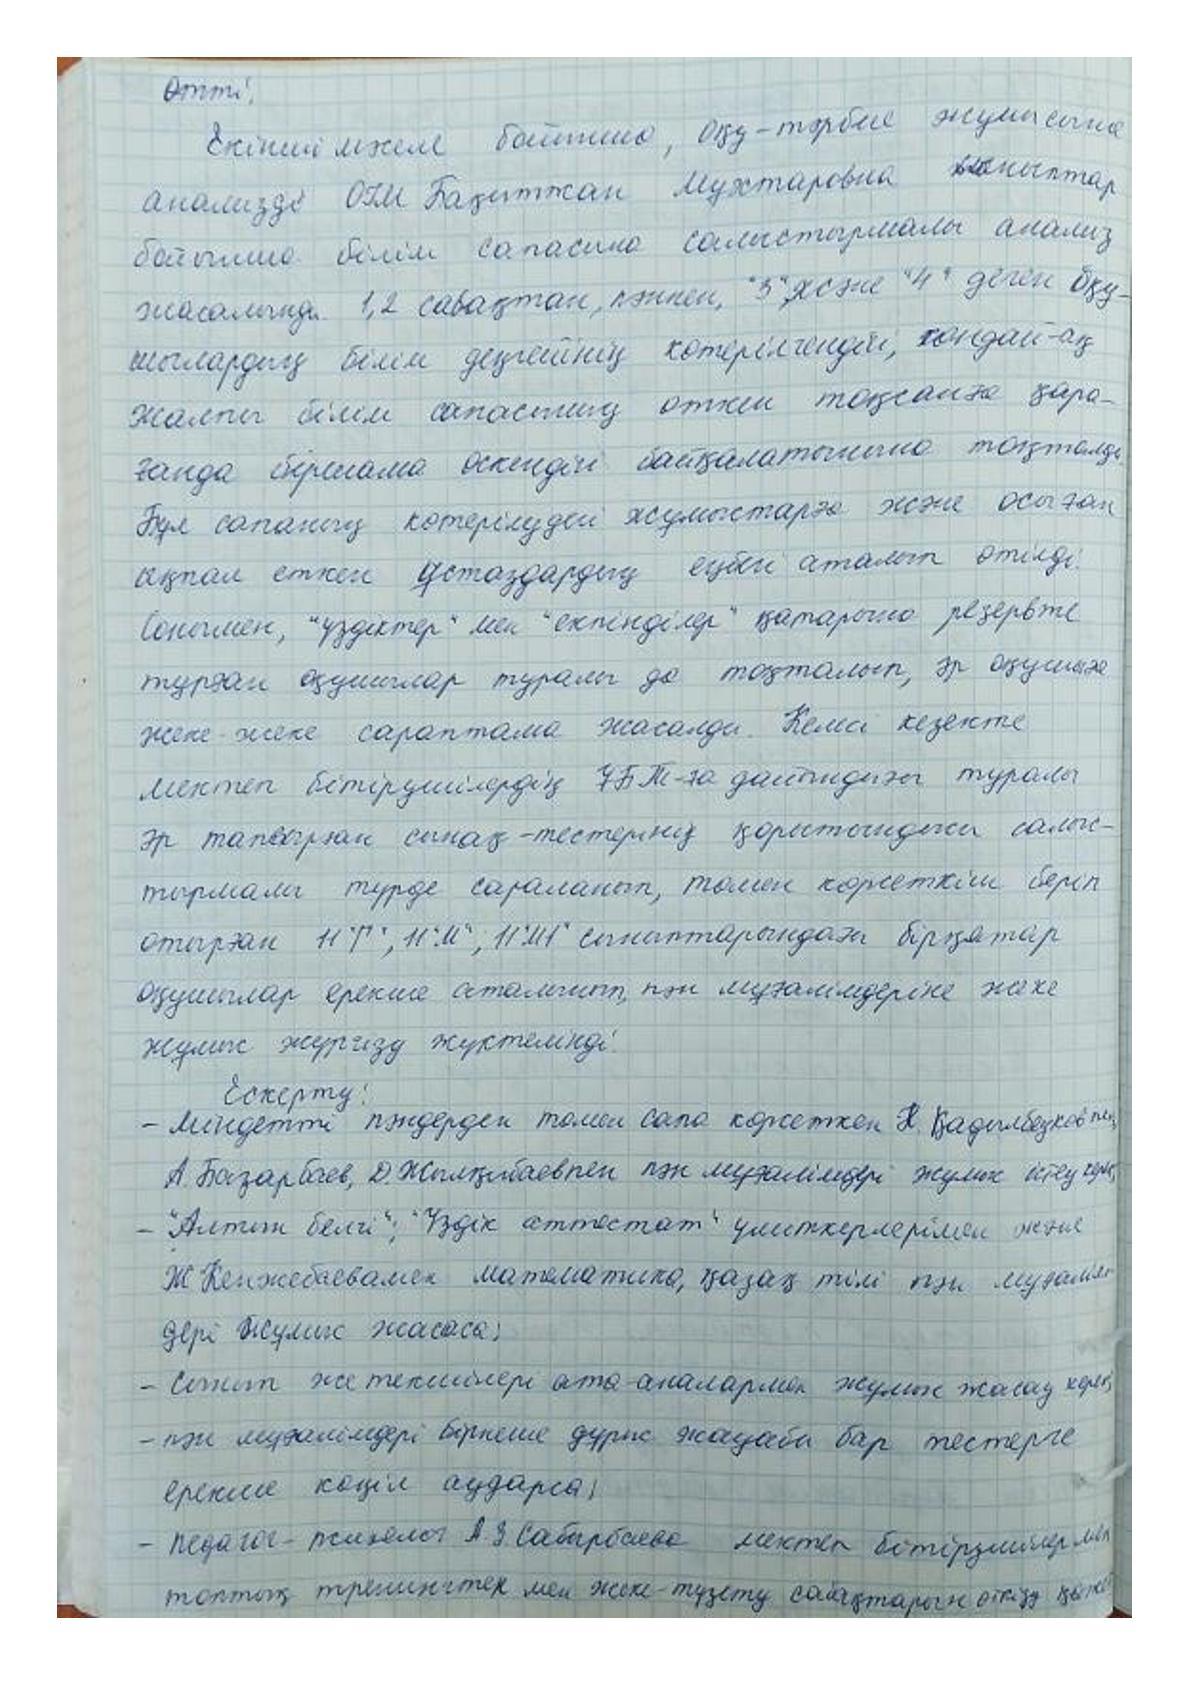 өтті.
Екінші мәселе бойынша, оқу-тәрбие жұмысына
анализді ОІМ Бақытжан Мухтаровна сыныптар
бойынша білім сапасына салыстырмалы анализ
жасалынды. 1,2 сабақтан, пәннен, "3", және "4" деген оқу-
шылардың білім деңгейнің көтерілгендігі, сондай-ақ
жалпы білім сапасының өткен тоқсанға қара-
ғанда біршама өскендігі байқалатынына тоқталды.
Бұл сапаның көтерілудегі жұмыстарға және осыған
ықпал еткен ұстаздардың еңбегі аталып өтілді.
Сонымен, "үздіктер" мен "екпінділер" қатарына резервте
тұрған оқушылар туралы да тоқталып, әр оқушыға
жеке-жеке сараптама жасалды. Келесі кезекте
мектеп бітірушілердің ҰБТ-ға дайындығы туралы
әр тапсырған сынақ-тестерінің қорытындысы салыс-
тырмалы түрде сараланып, төмен көрсеткіш беріп
отырған 11"Г", 11"М", 11"М1" сыныптарындағы бірқатар
оқушылар ерекше аталынып, пән мұғалімдеріне жеке
жұмыс жүргізу жүктелінді.
Ескерту:
- Міндетті пәндерден төмен сапа көрсеткен Қадылбеков пен
А. Базарбаев, Д. Жылқыбаевпен пән мұғалімдері жұмыс істеу керек;
- "Алтын белгі"; "Үздік аттестат" үміткерлерімен және
Ж Кенжебаевамен математика, қазақ тілі пән мұғалім-
дері жұмыс жасаса;
- Сынып жетекшілері ата-аналармен жұмыс жасау керек;
- пән мұғалімдері бірнеше дұрыс жауабы бар тестерге
ерекше көңіл аударса;
- педагог-психолог А.З. Сабырбаева мектеп бітірушілермен
топтық тренингтек мен жеке-түзету сабақтарын өткізу